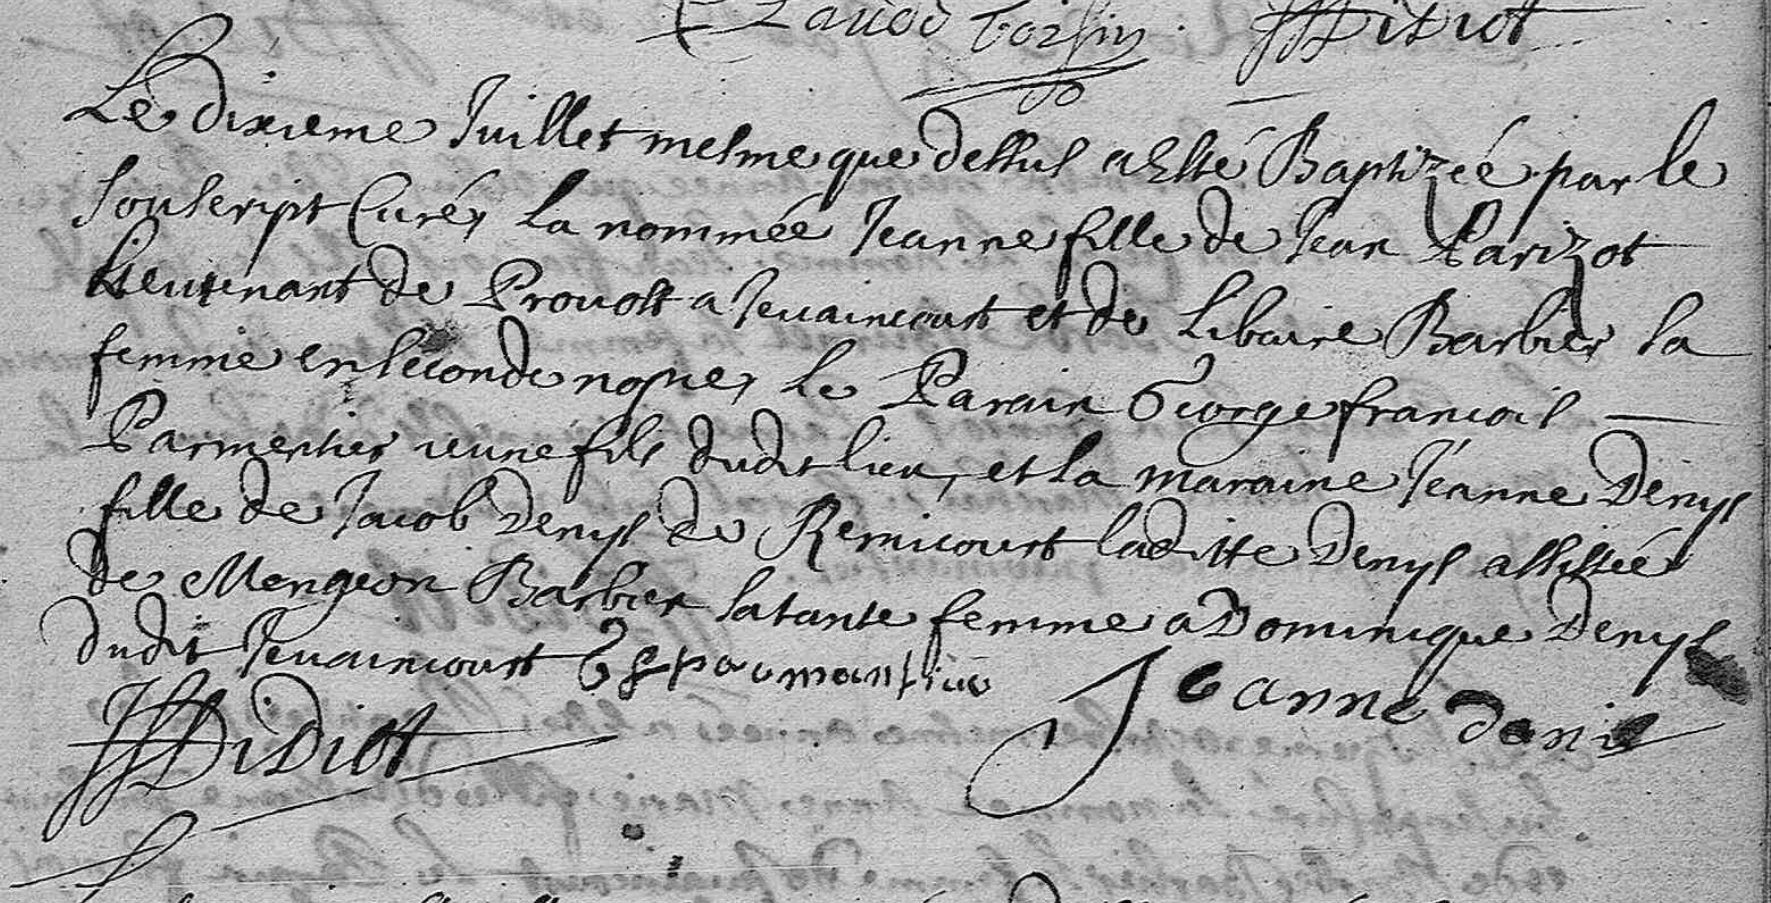 Claude Voirin Didiot
Le dixieme Juillet mesme que dessus a esté Baptizée par le
soubscript Curé, la nommée Jeanne fille de Jean Parizot
Lieutenant de Prevost a Jevaincourt et de Libaire Barbier sa
femme en seconde nopce, le Parain George francois
Parmentier jeune fils dudit lieu, et la maraine Jeanne Denys
fille de Jacob Denys de Remicourt laditte Denys assistée
de Mengeon Barbier sa tante femme a Dominique Denys
dudit Jevaincourt
Jeanne denis
Didiot